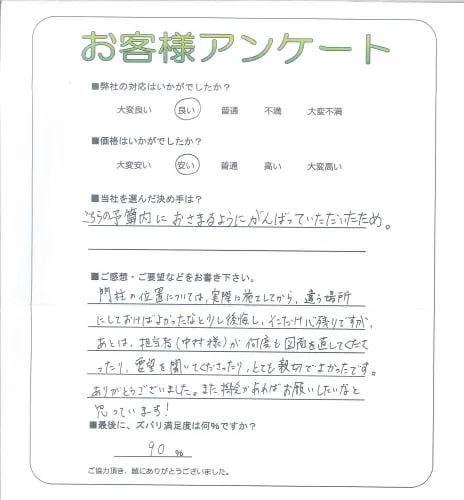 お客様アンケート
■弊社の対応はいかがでしたか？
大変良い 良い 普通 不満 大変不満
■価格はいかがでしたか？
大変安い 安い 普通 高い 大変高い
■当社を選んだ決め手は？
こちらの予算内におさまるようにがんばっていただいたため。
■ご感想・ご要望などをお書き下さい。
門柱の位置については、実際に施工してから、違う場所
にしておけばよかったなと少し後悔し、そこだけ心残りですが、
あとは、担当者(中村様)が何度も図面を直してくださ
ったり、要望を聞いてくださったり、とても親切でよかったです。
ありがとうございました。また機会があればお願いしたいなと
思っています！
■最後に、ズバリ満足度は何%ですか？
90 %
ご協力頂き、誠にありがとうございました。